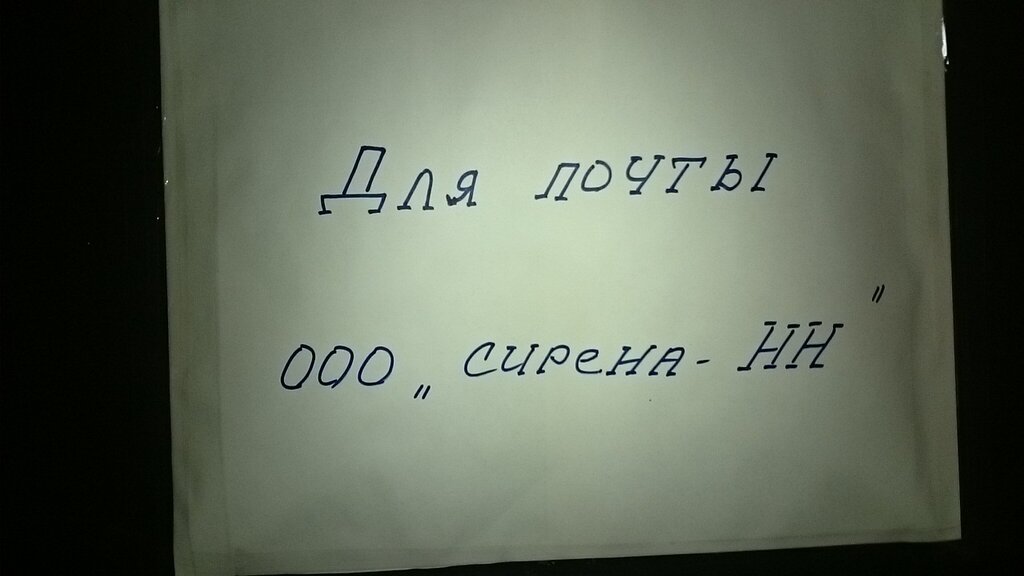 Для почты
ООО „ сирена- НН "